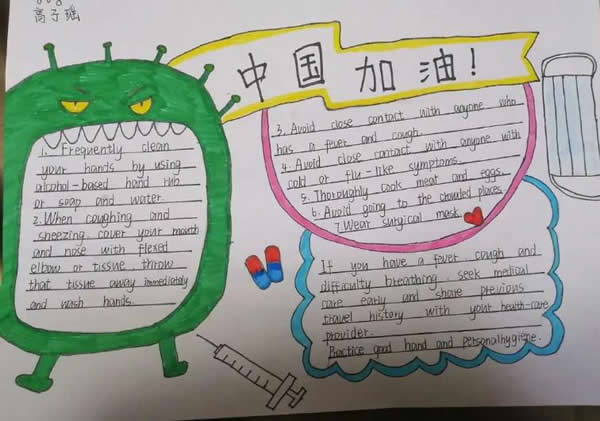 高子瑶
中国加油!
1. Frequently clean
your hands by using
alcohol-based hand rub
or soap and water
2. When coughing and
sneezing cover your mouth
and nose with flexed
elbow or tissue throw
that tissue away immediately
and wash hands.
3. Avoid close contact with anyone who
has a fever and cough.
4. Avoid close contact with anyone with
cold or flu-like symptoms.
5. Thoroughly cook meat and eggs.
6. Avoid going to the crowded places
7. Wear surgical mask.
If you have a fever cough and
difficulty breathing seek medical
care early and share previous
travel history with your health-care
provider.
Practice good hand and personalhygiene.